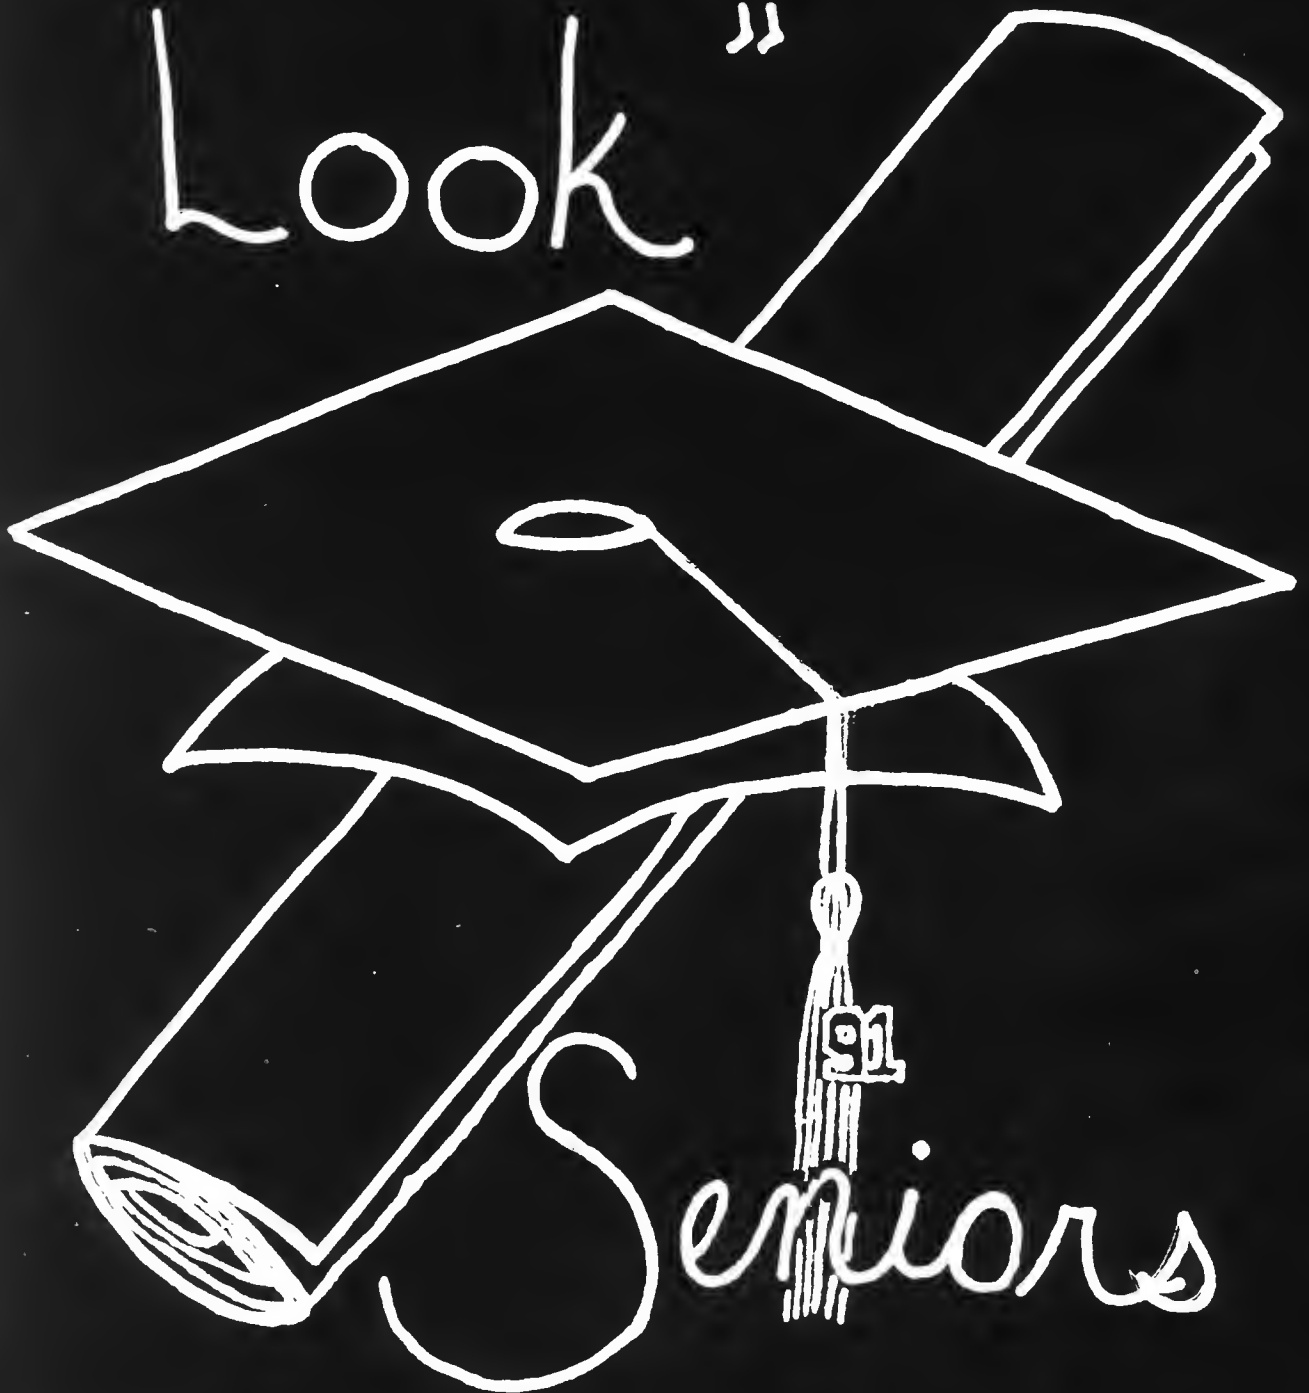 Look”
91
Seniors